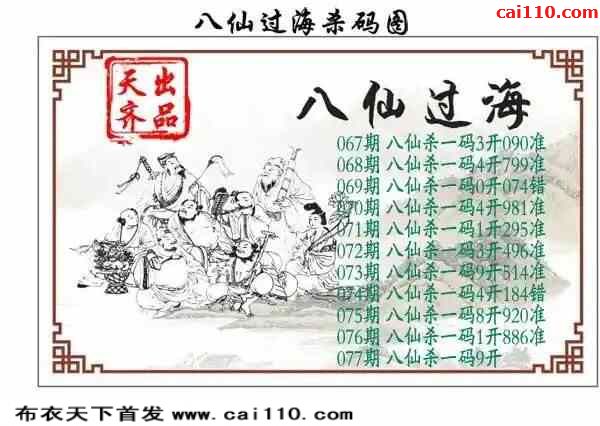 八仙过海杀码图
cai110.com
天齐
出品
八仙过海
067期 八仙杀一码3开090准
068期 八仙杀一码4开799准
069期 八仙杀一码0开074错
070期 八仙杀一码4开981准
071期 八仙杀一码1开295准
072期 八仙杀一码3开496准
073期 八仙杀一码9开514准
074期 八仙杀一码4开184错
075期 八仙杀一码8开920准
076期 八仙杀一码1开886准
077期 八仙杀一码9开
布衣天下首发 www.cai110.com